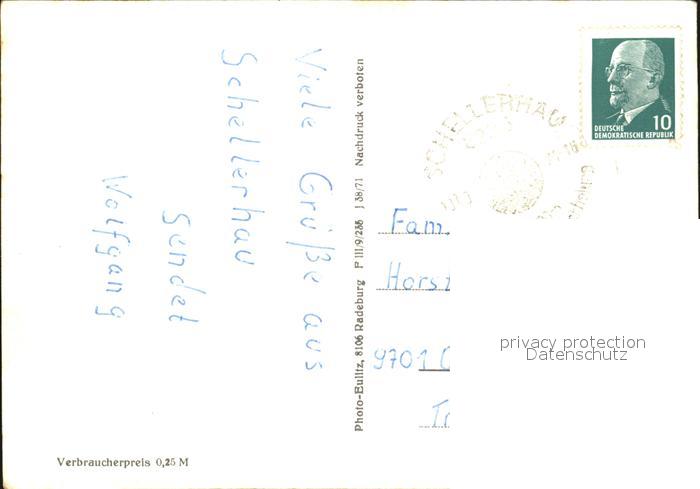 Viele Grüße aus
Schellerhau
Sendet
Wolfgang
Verbraucherpreis 0,25 M
Photo-Eulitz, 8106 Radeburg P III/9/286 J 38/71 Nachdruck verboten
SCHELLERHAU
DEUTSCHE
DEMOKRATISCHE REPUBLIK
10
Fam.
Horst
9701
privacy protection
Datenschutz